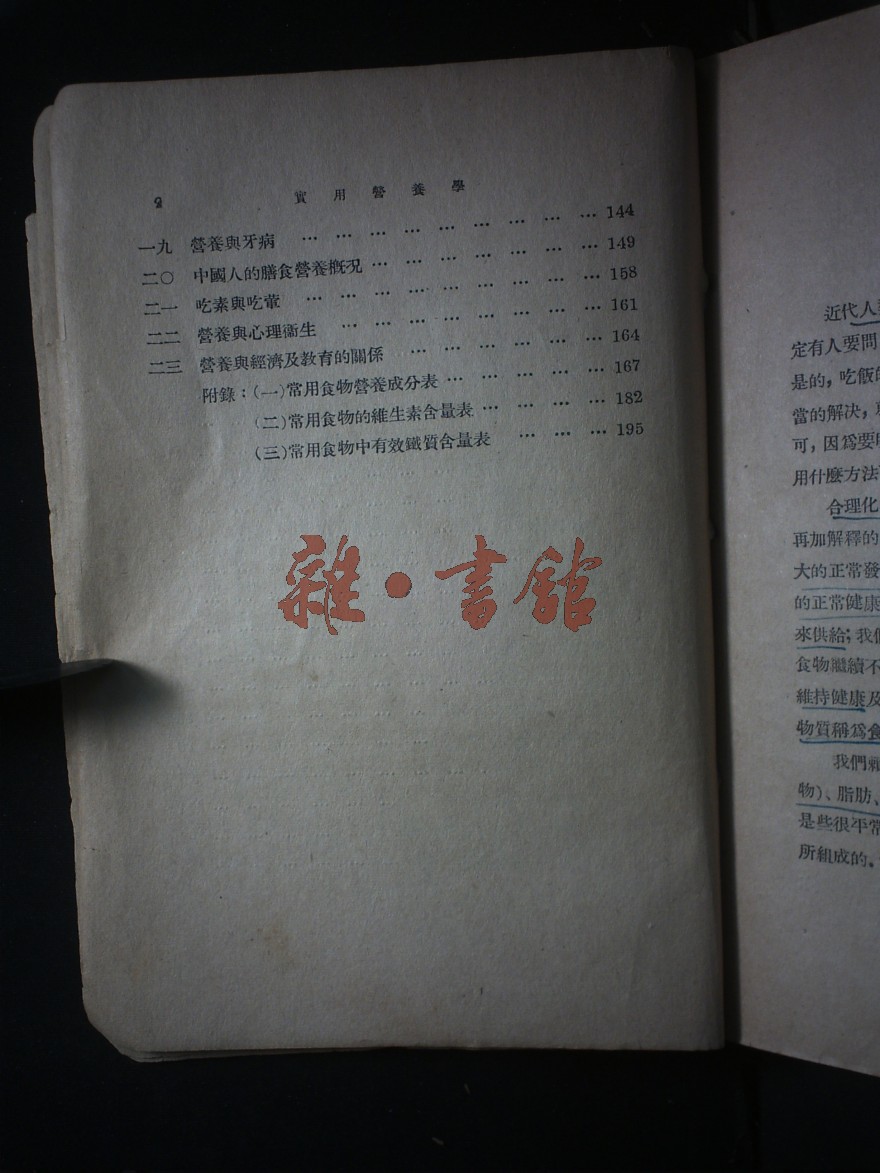 2 實用營養學
一九 營養與牙病 … … … … … … … … … 144
二〇 中國人的膳食營養概况 … … … … … … … 149
二一 吃素與吃葷 … … … … … … … … … 158
二二 營養與心理衞生 … … … … … … … … 161
二三 營養與經濟及教育的關係 … … … … … … 164
附錄：(一)常用食物營養成分表 … … … … … 167
(二)常用食物的維生素含量表 … … … … 182
(三)常用食物中有效鐵質含量表 … … … 195
雜·書館
近代人
定有人要問
是的，吃飯
當的解決，
可，因爲要
用什麽方法
合理化
再加解釋的
大的正常發
的正常健康
來供給；我們
食物繼續不
維持健康及
物質稱爲食
我們
物）、脂肪、
是些很平常
所組成的。